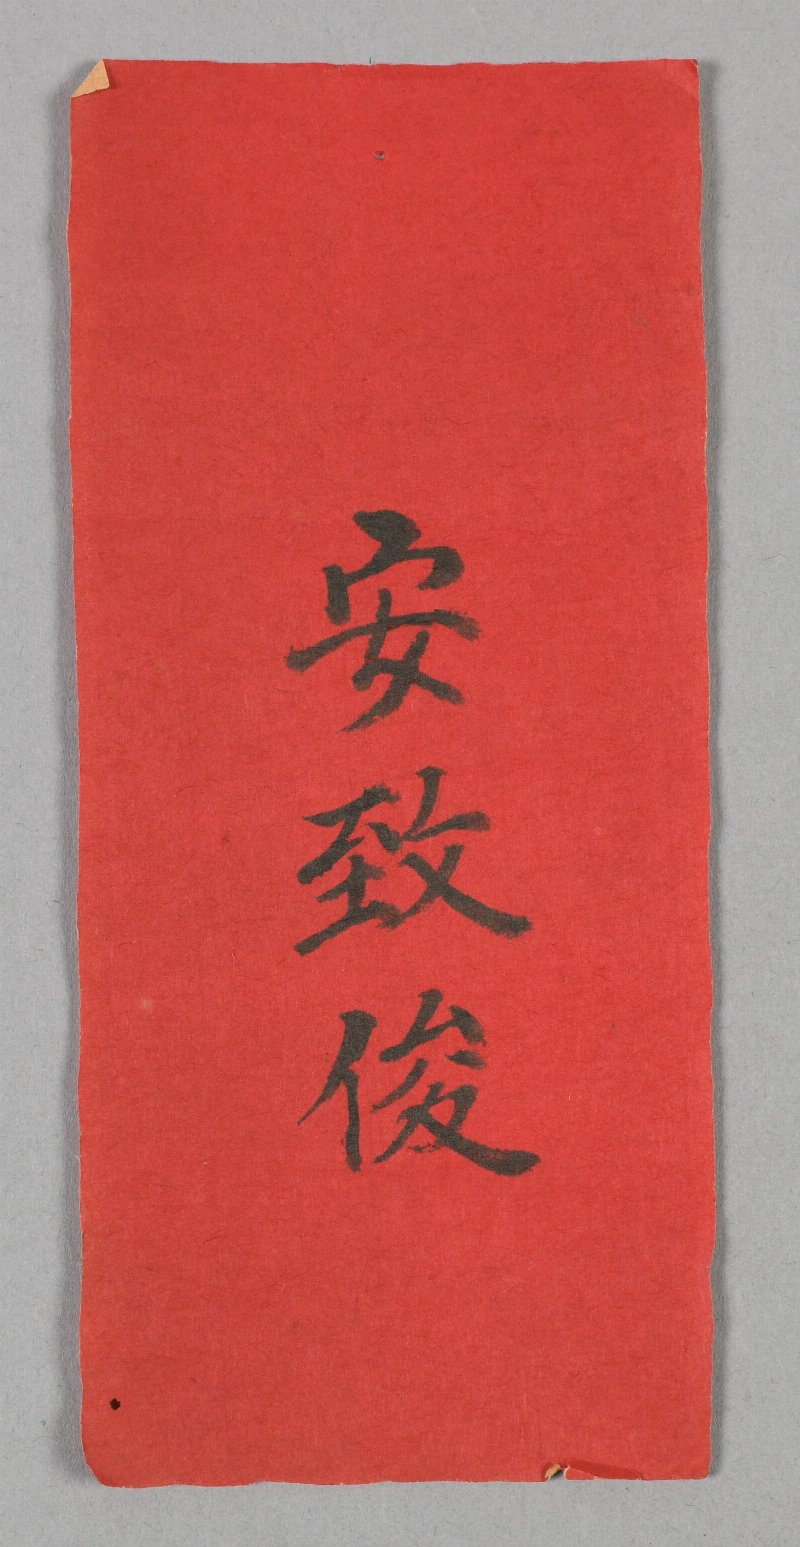 安致俊